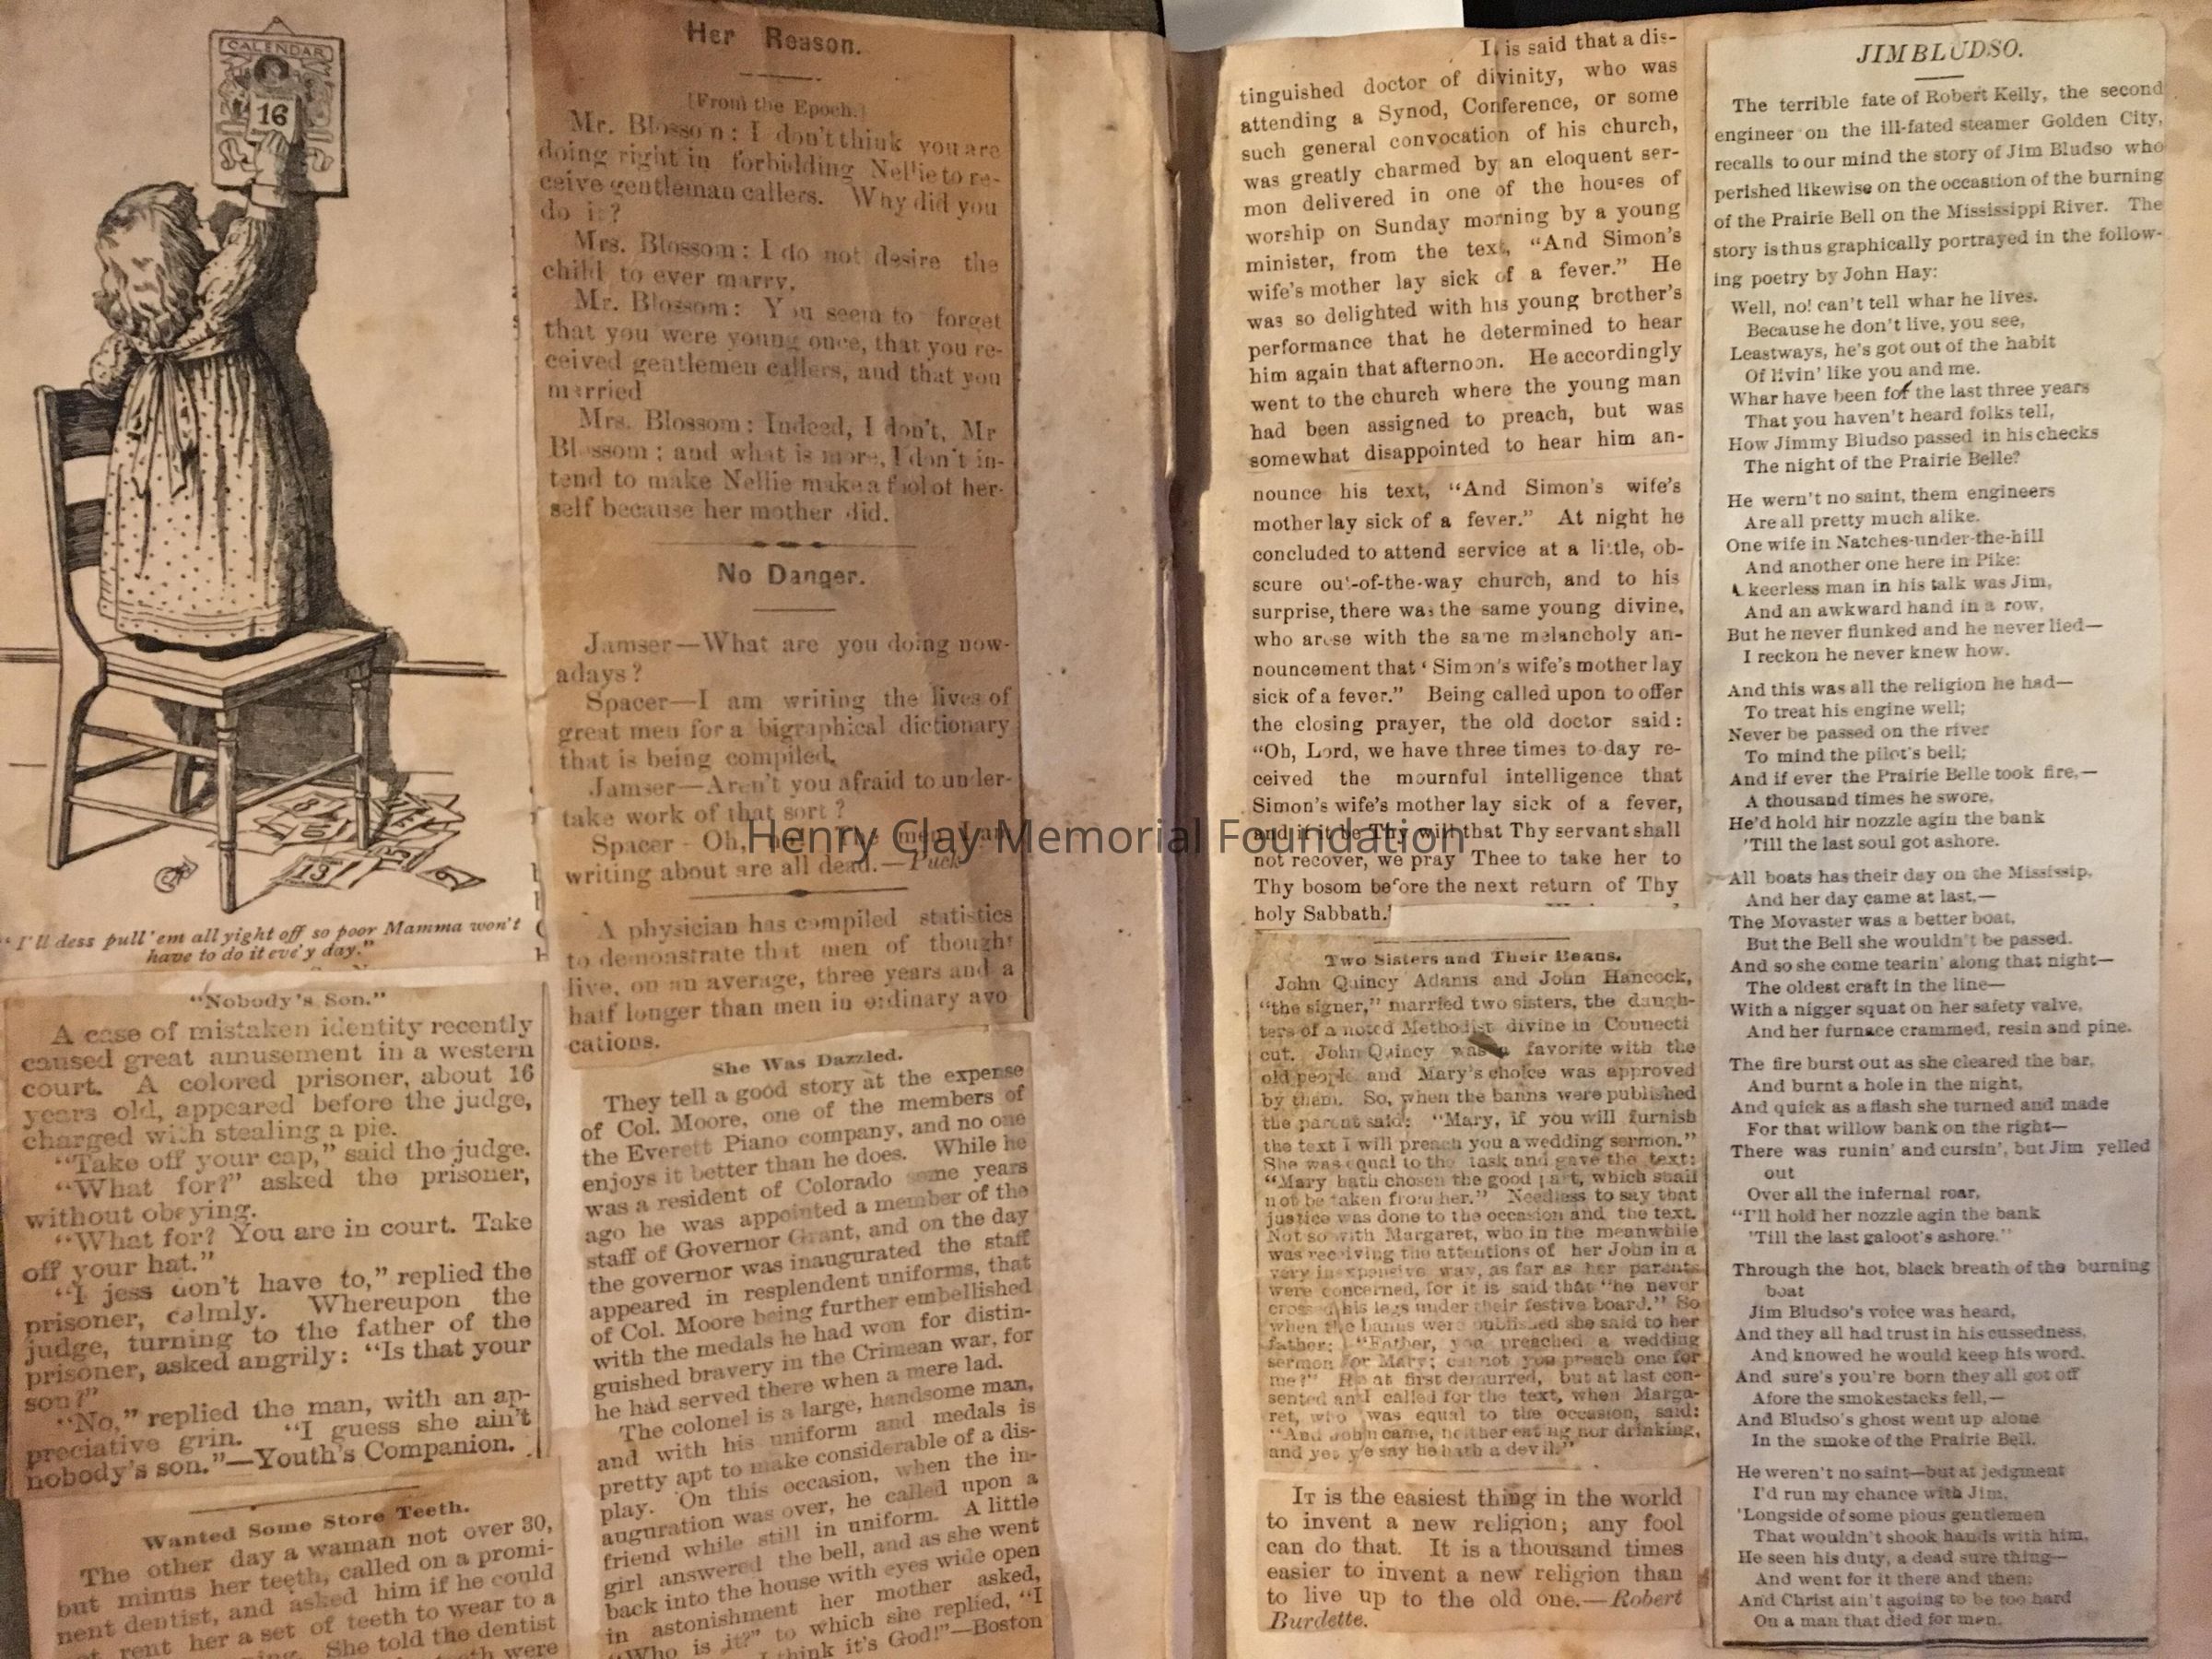 CALENDAR
16
13
6
"I'll dess pull 'em all yight off so poor Mamma won't
have to do it eve'y day."
"Nobody's Son."
A case of mistaken identity recently
caused great amusement in a western
court. A colored prisoner, about 16
years old, appeared before the judge,
charged with stealing a pie.
"Take off your cap," said the judge.
"What for?" asked the prisoner,
without obeying.
"What for? You are in court. Take
off your hat."
"I jess don't have to," replied the
prisoner, calmly. Whereupon the
judge, turning to the father of the
prisoner, asked angrily: "Is that your
son?"
"No," replied the man, with an ap-
preciative grin. "I guess she ain't
nobody's son."—Youth's Companion.
Wanted Some Store Teeth.
The other day a waman not over 30,
but minus her teeth, called on a promi-
nent dentist, and asked him if he could
rent her a set of teeth to wear to a
She told the dentist
were
Her Reason.
[From the Epoch.]
Mr. Blossom: I don't think you are
doing right in forbidding Nellie to re-
ceive gentleman callers. Why did you
do it?
Mrs. Blossom: I do not desire the
child to ever marry.
Mr. Blossom: You seem to forget
that you were young once, that you re-
ceived gentlemen callers, and that you
married
Mrs. Blossom: Indeed, I don't, Mr
Blossom; and what is more, I don't in-
tend to make Nellie make a fool of her-
self because her mother did.
No Danger.
Jamser—What are you doing now-
adays?
Spacer—I am writing the lives of
great men for a bigraphical dictionary
that is being compiled.
Jamser—Aren't you afraid to under-
take work of that sort?
Spacer - Oh, men I am
writing about are all dead.—Puck
A physician has compiled statistics
to demonstrate that men of thought
live, on an average, three years and a
half longer than men in ordinary avo
cations.
She Was Dazzled.
They tell a good story at the expense
of Col. Moore, one of the members of
the Everett Piano company, and no one
enjoys it better than he does. While he
was a resident of Colorado some years
ago he was appointed a member of the
staff of Governor Grant, and on the day
the governor was inaugurated the staff
appeared in resplendent uniforms, that
of Col. Moore being further embellished
with the medals he had won for distin-
guished bravery in the Crimean war, for
he had served there when a mere lad.
The colonel is a large, handsome man,
and with his uniform and medals is
pretty apt to make considerable of a dis-
play. On this occasion, when the in-
auguration was over, he called upon a
friend while still in uniform. A little
girl answered the bell, and as she went
back into the house with eyes wide open
in astonishment her mother asked,
"Who is it?" to which she replied, "I
think it's God!"—Boston
I is said that a dis-
tinguished doctor of divinity, who was
attending a Synod, Conference, or some
such general convocation of his church,
was greatly charmed by an eloquent ser-
mon delivered in one of the houses of
worship on Sunday morning by a young
minister, from the text, "And Simon's
wife's mother lay sick of a fever." He
was so delighted with his young brother's
performance that he determined to hear
him again that afternoon. He accordingly
went to the church where the young man
had been assigned to preach, but was
somewhat disappointed to hear him an-
nounce his text, "And Simon's wife's
mother lay sick of a fever." At night he
concluded to attend service at a little, ob-
scure out-of-the-way church, and to his
surprise, there was the same young divine,
who arose with the same melancholy an-
nouncement that 'Simon's wife's mother lay
sick of a fever." Being called upon to offer
the closing prayer, the old doctor said:
"Oh, Lord, we have three times to-day re-
ceived the mournful intelligence that
Simon's wife's mother lay sick of a fever,
and if it be Thy will that Thy servant shall
not recover, we pray Thee to take her to
Thy bosom before the next return of Thy
holy Sabbath.'
Two Sisters and Their Beaus.
John Quincy Adams and John Hancock,
"the signer," married two sisters, the daugh-
ters of a noted Methodist divine in Connecti
cut. John Quincy was a favorite with the
old people and Mary's choice was approved
by them. So, when the banns were published
the parent said: "Mary, if you will furnish
the text I will preach you a wedding sermon."
She was equal to the task and gave the text:
"Mary hath chosen the good part, which shall
not be taken from her." Needless to say that
justice was done to the occasion and the text.
Not so with Margaret, who in the meanwhile
was receiving the attentions of her John in a
very inexpensive way, as far as her parents
were concerned, for it is said that "he never
crossed his legs under their festive board." So
when the banns were published she said to her
father: "Father, you preached a wedding
sermon for Mary; cannot you preach one for
me?" He at first demurred, but at last con-
sented and called for the text, when Marga-
ret, who was equal to the occasion, said:
"And John came, neither eating nor drinking,
and yet ye say he hath a devil."
IT is the easiest thing in the world
to invent a new religion; any fool
can do that. It is a thousand times
easier to invent a new religion than
to live up to the old one.—Robert
Burdette.
JIM BLUDSO.
The terrible fate of Robert Kelly, the second
engineer on the ill-fated steamer Golden City,
recalls to our mind the story of Jim Bludso who
perished likewise on the occastion of the burning
of the Prairie Bell on the Mississippi River. The
story is thus graphically portrayed in the follow-
ing poetry by John Hay:
Well, no! can't tell whar he lives.
Because he don't live, you see,
Leastways, he's got out of the habit
Of livin' like you and me.
Whar have been for the last three years
That you haven't heard folks tell,
How Jimmy Bludso passed in his checks
The night of the Prairie Belle?
He wern't no saint, them engineers
Are all pretty much alike.
One wife in Natches-under-the-hill
And another one here in Pike:
A keerless man in his talk was Jim,
And an awkward hand in a row,
But he never flunked and he never lied—
I reckon he never knew how.
And this was all the religion he had—
To treat his engine well;
Never be passed on the river
To mind the pilot's bell;
And if ever the Prairie Belle took fire,—
A thousand times he swore,
He'd hold hir nozzle agin the bank
'Till the last soul got ashore.
All boats has their day on the Mississip,
And her day came at last,—
The Movaster was a better boat,
But the Bell she wouldn't be passed.
And so she come tearin' along that night—
The oldest craft in the line—
With a nigger squat on her safety valve,
And her furnace crammed, resin and pine.
The fire burst out as she cleared the bar,
And burnt a hole in the night,
And quick as a flash she turned and made
For that willow bank on the right—
There was runin' and cursin', but Jim yelled
out
Over all the infernal roar,
"I'll hold her nozzle agin the bank
'Till the last galoot's ashore."
Through the hot, black breath of the burning
boat
Jim Bludso's voice was heard,
And they all had trust in his cussedness,
And knowed he would keep his word.
And sure's you're born they all got off
Afore the smokestacks fell,—
And Bludso's ghost went up alone
In the smoke of the Prairie Bell.
He weren't no saint—but at jedgment
I'd run my chance with Jim,
'Longside of some pious gentlemen
That wouldn't shook hands with him.
He seen his duty, a dead sure thing—
And went for it there and then;
And Christ ain't agoing to be too hard
On a man that died for men.
Henry Clay Memorial Foundation